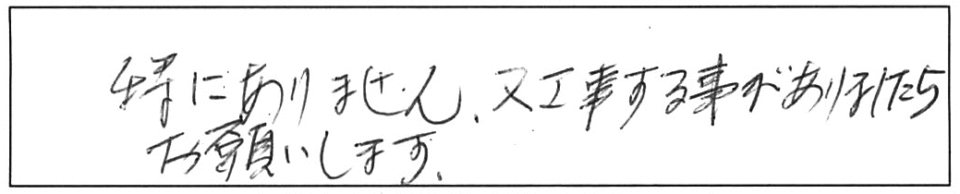 特にありません、又工事する事がありましたら
お願いします、